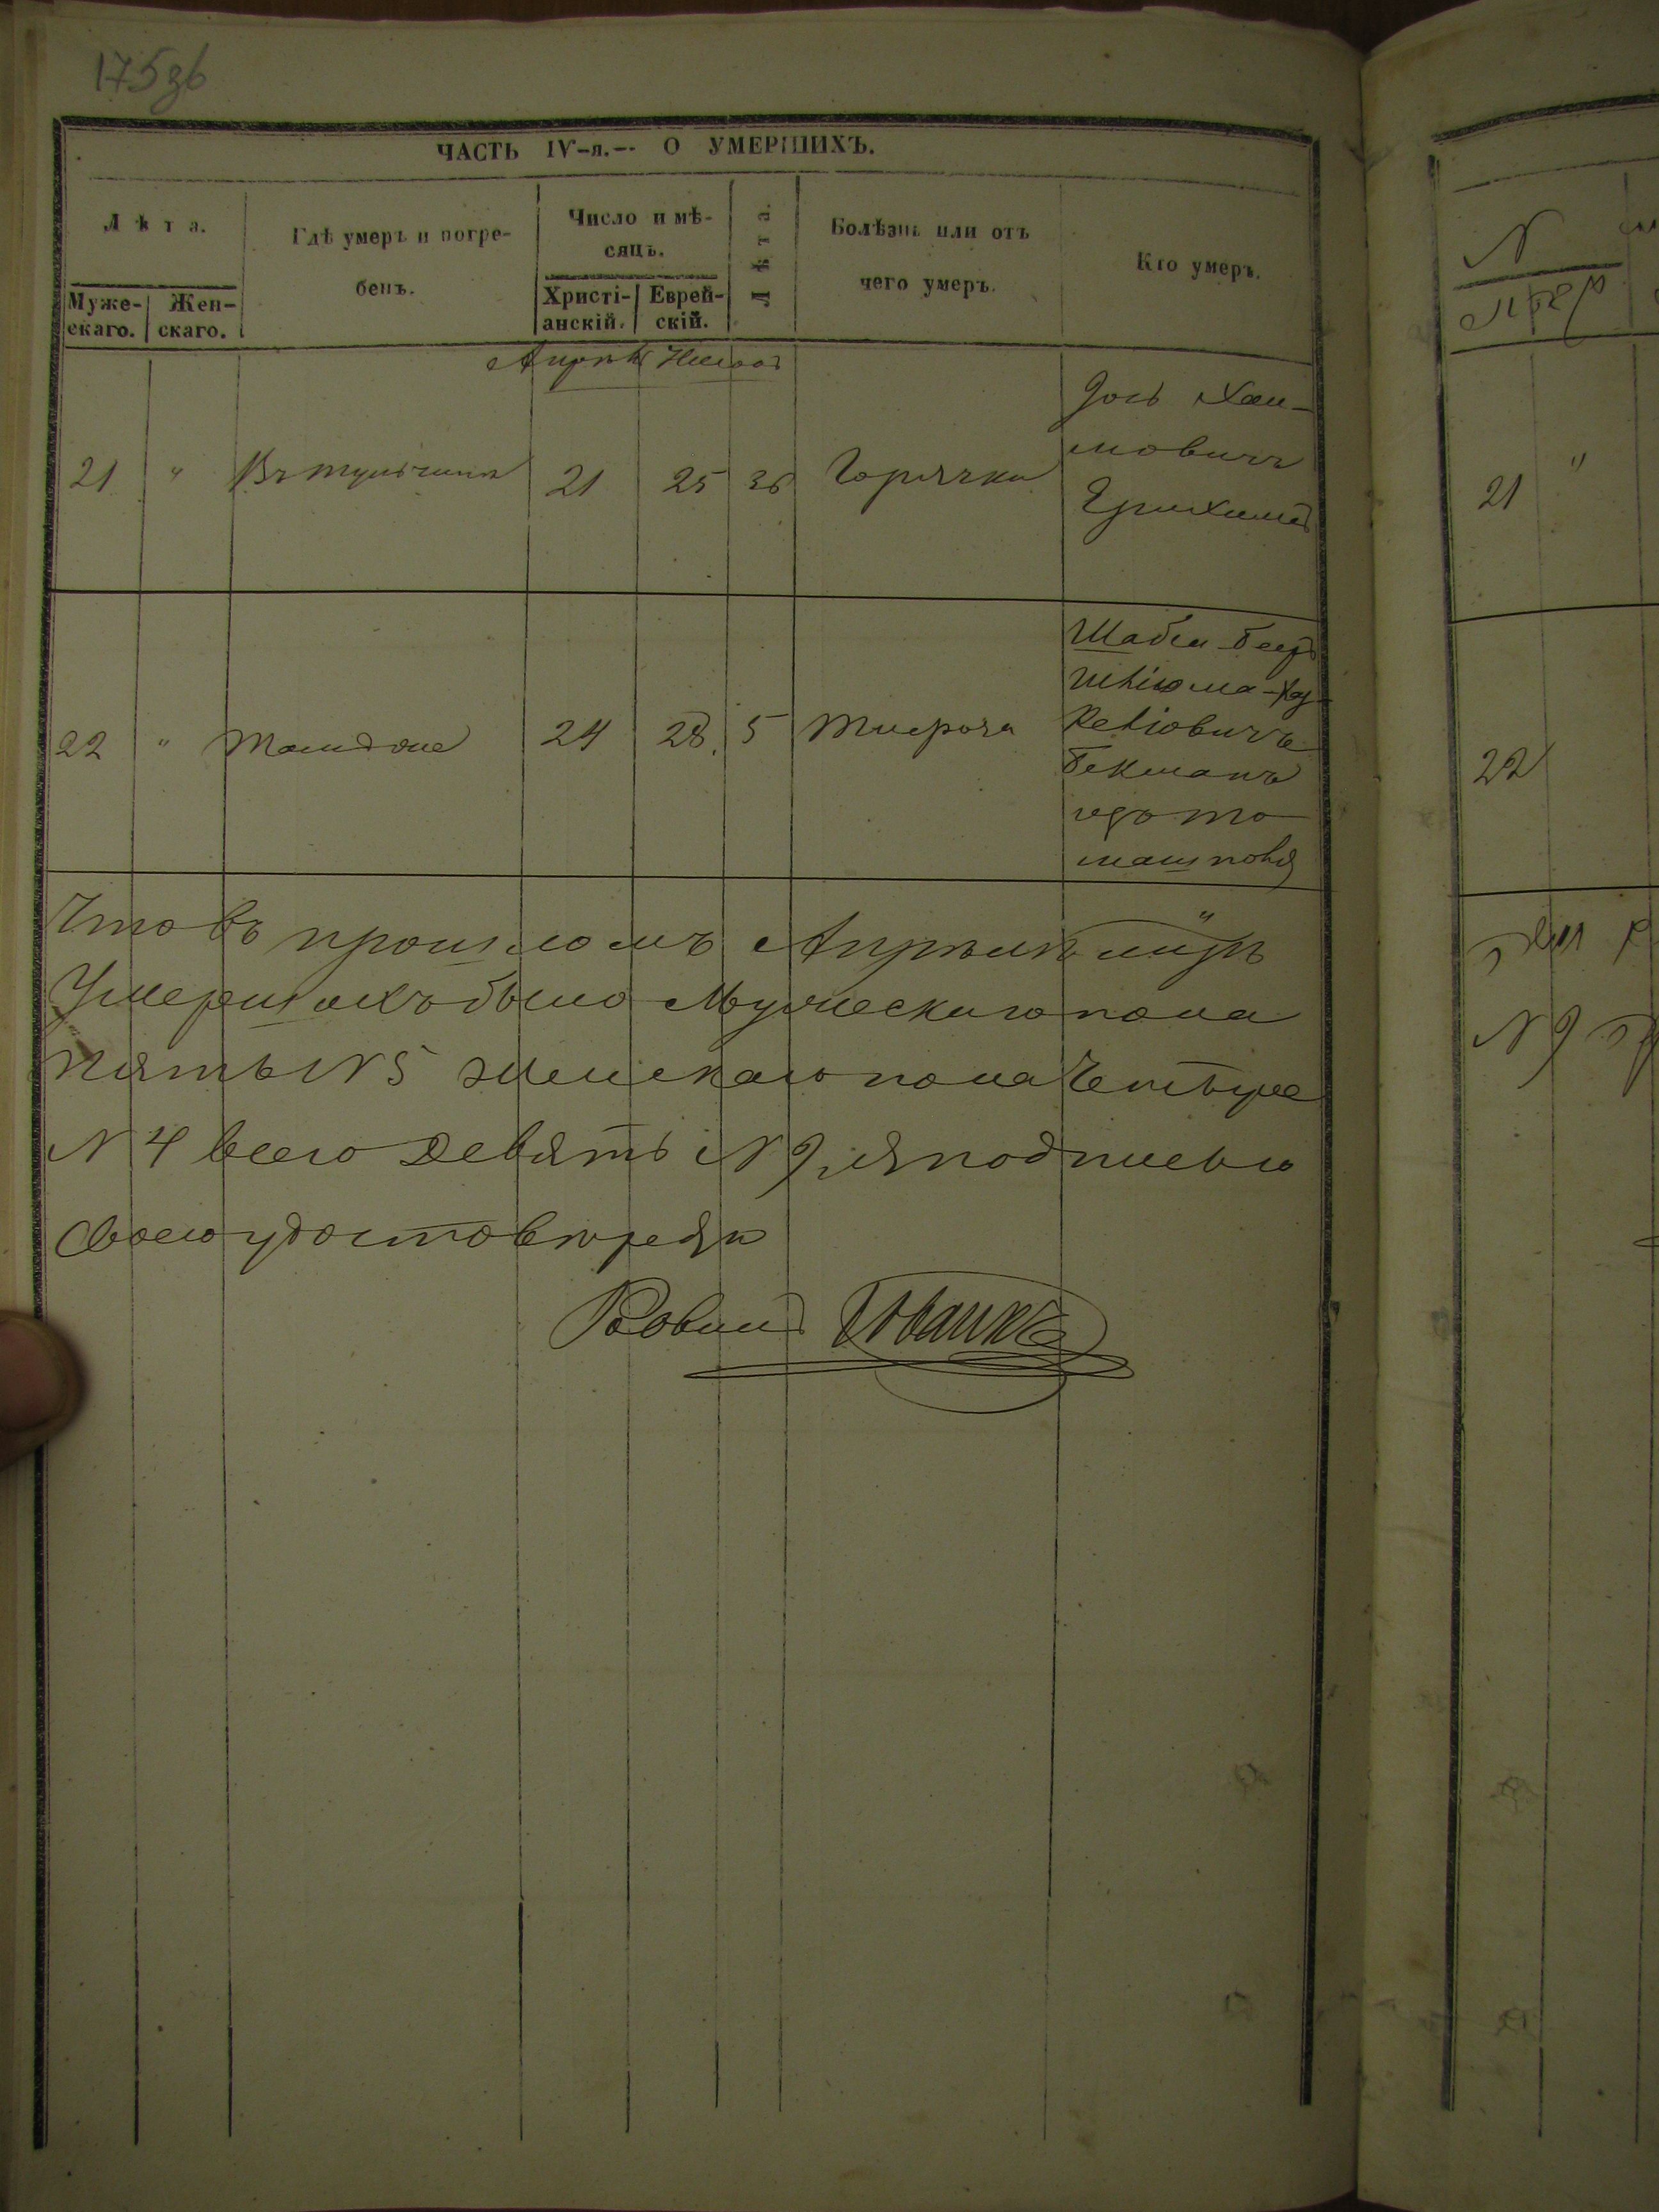 175зв
ЧАСТЬ IV-я.-- О УМЕРШИХЪ.
Лѣта.
Муже-скаго.
Жен-скаго.
Гдѣ умеръ и погре-
бенъ.
Число и мѣ-
сяцъ.
Христі-анскій.
Еврей-скій.
Лѣта.
Болѣзнь или отъ
чего умеръ.
Кто умеръ.
21 " Въ тульчинѣ 21 25 36 Горячки
Іось Хаи-
мовичъ
22 " тамъ же 24 28 5
Шабси-беръ
Шліома-
Бекманъ
Что въ прошломъ Апрѣлѣ мцѣ
Умершихъ было Мужескаго пола
пять N 5 женскаго пола Четыре
N 4 всего Девять N 9 я подписью
своею удостовѣряю
Раввинъ
N
21 "
22
N 9